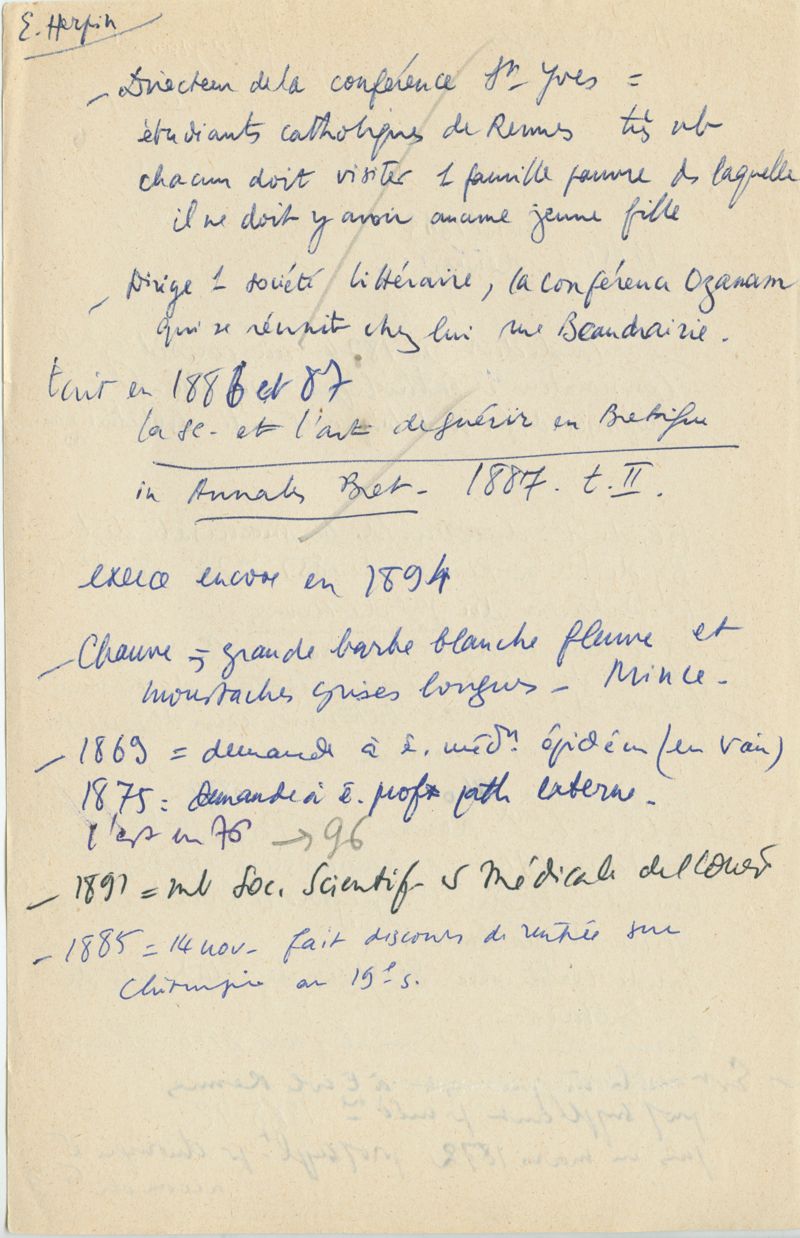 E. Herpin
– Directeur de la conférence St-Yves =
étudiants catholiques de Rennes très nb
chacun doit visiter 1 famille pauvre ds laquelle
il ne doit y avoir aucune jeune fille
– Dirige 1 société littéraire, la conférence Ozanam
qui se réunit chez lui rue Beaudrairie.
Ecrit en 1886 et 87
la sc. et l'art de guérir en Bretagne
in Annales Bret. 1887. t. II.
exerce encore en 1894
– Chauve = grande barbe blanche fleuve et
moustaches grises longues – Mince –
– 1869 = demande à ê. médn épidém (en vain)
1875 = demande à ê. profr path externe –
l'est en 76 → 96
– 1891 = mb Soc. Scientif. et Médicale de l'Ouest
– 1885 = 14 nov – fait discours de rentrée sur
Chirurgie au 19e s.